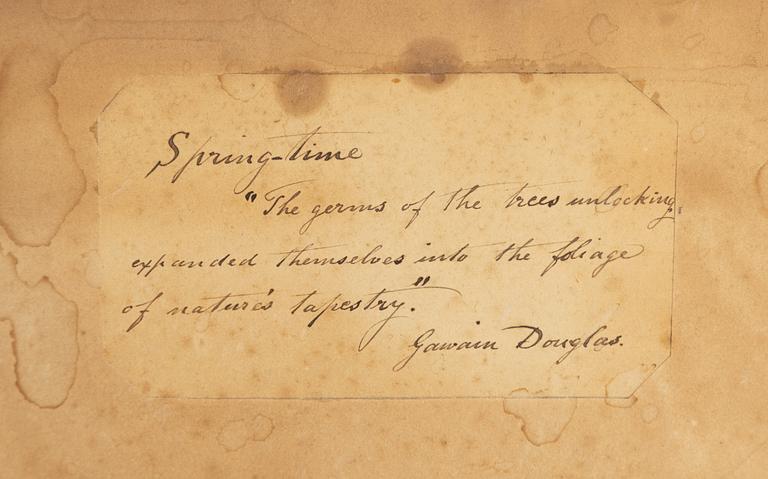 Spring-time
"The germs of the trees unlocking
expanded themselves into the foliage
of nature's tapestry."
Gawain Douglas.